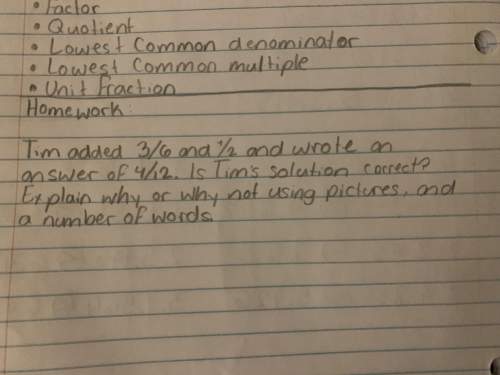 • Factor
• Quotient
• Lowest Common denominator
• Lowest Common multiple
• Unit Fraction
Homework:
Tim added 3/6 and 1/2 and wrote an
answer of 4/12. Is Tim's solution correct?
Explain why or why not using pictures, and
a number of words.